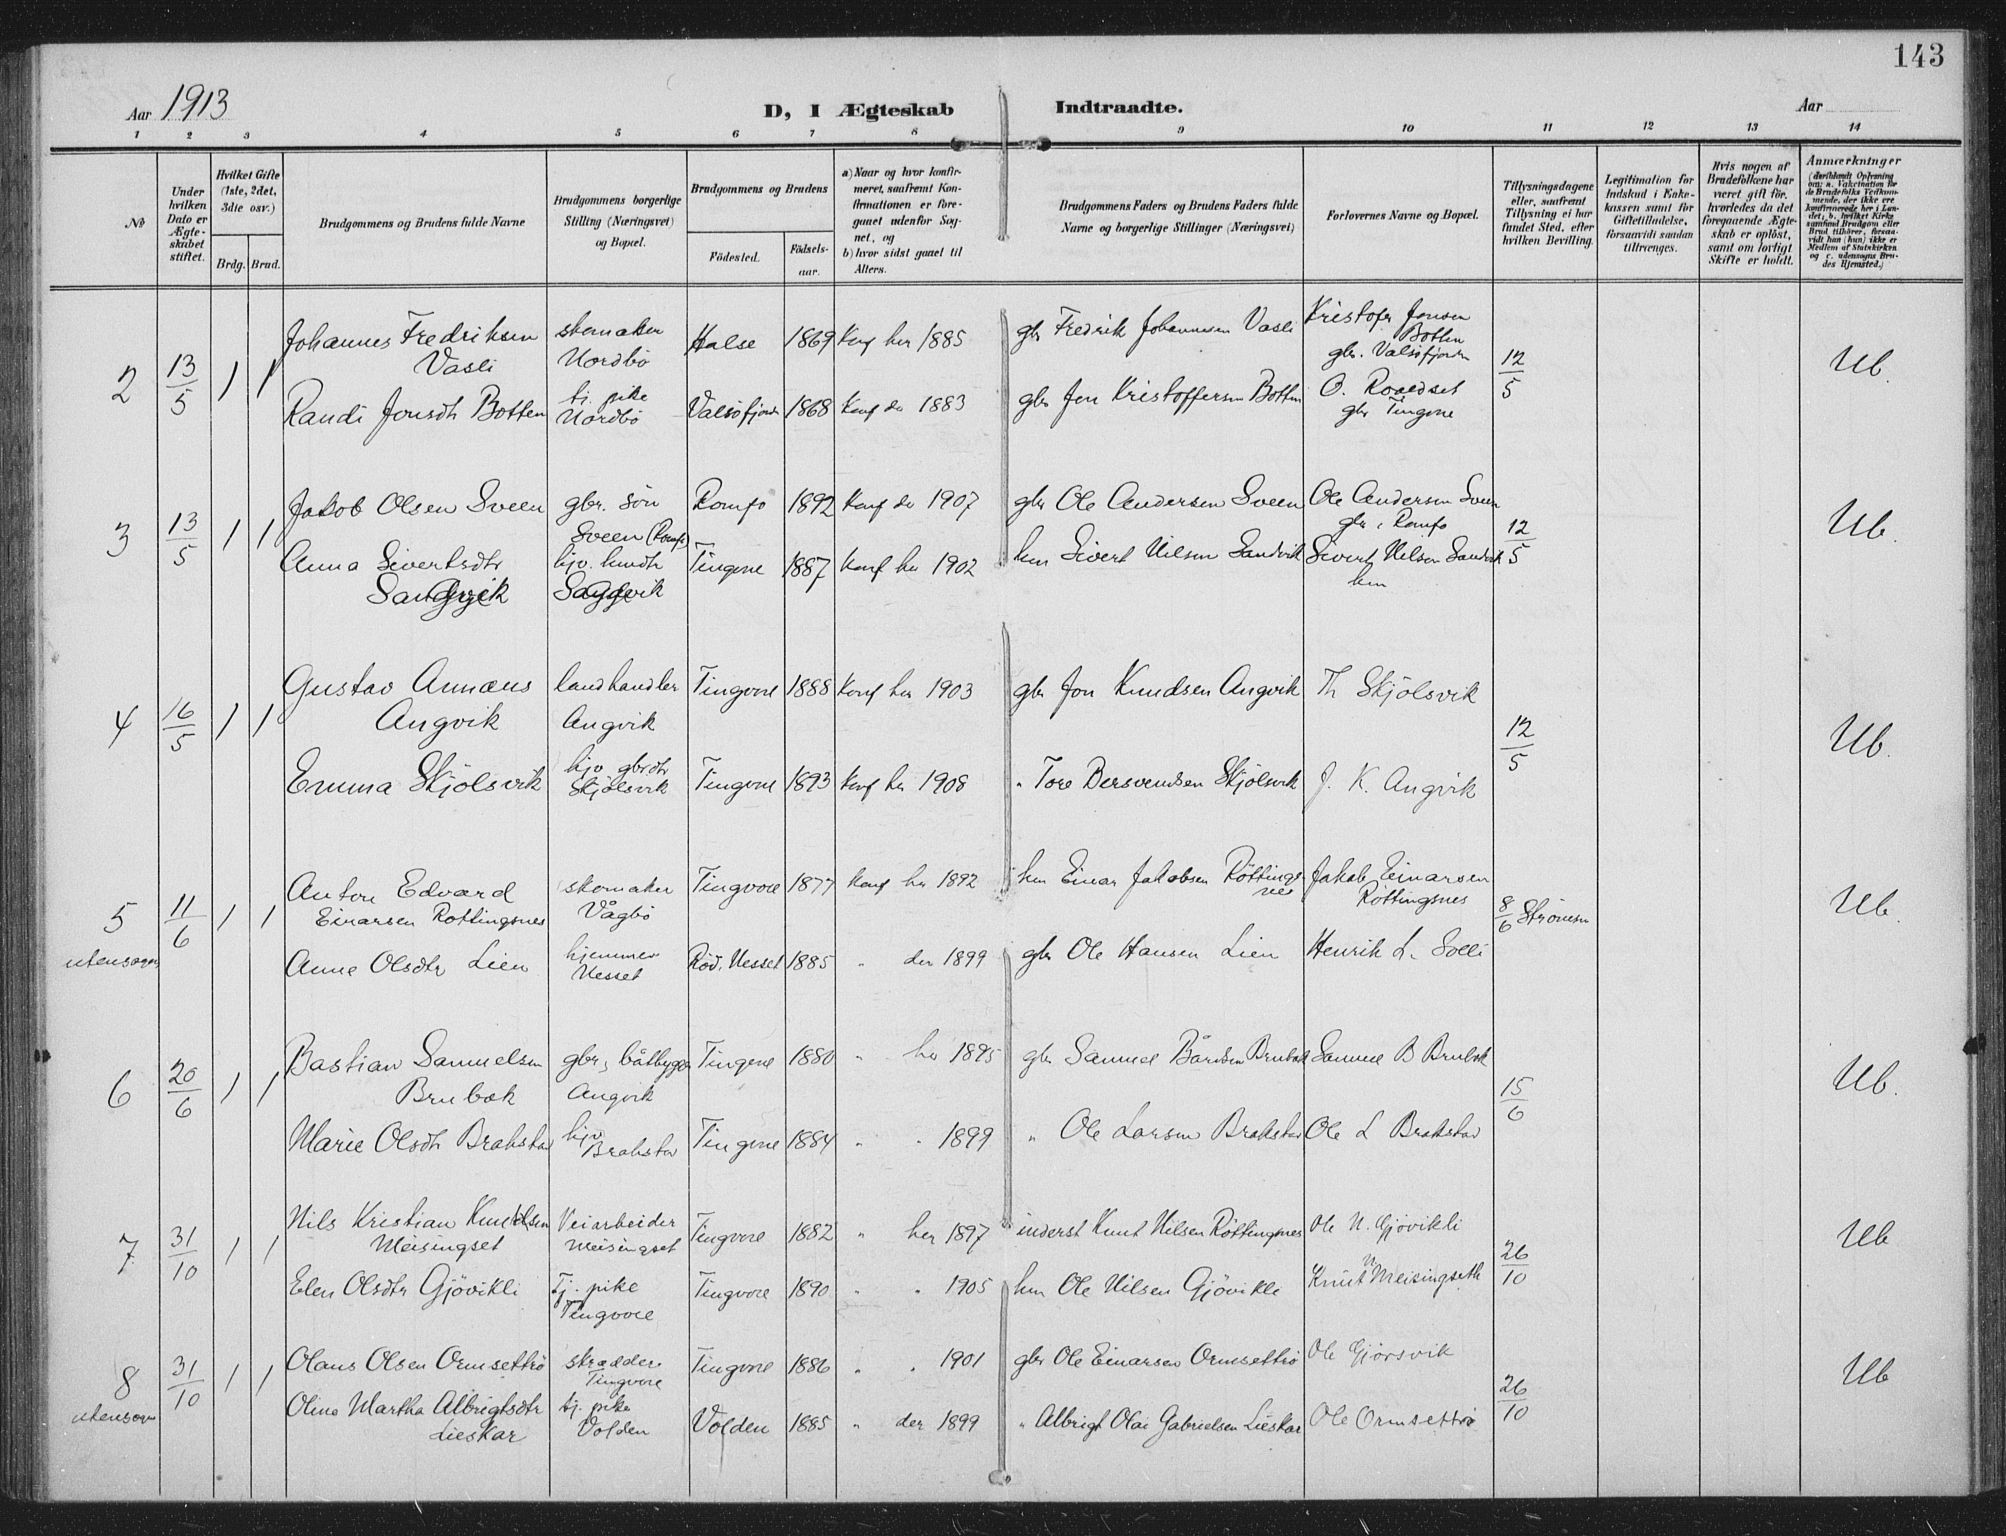 143
Aar 1913
D, I Ægteskab Indtraadte.
Aar
1 2 3 4 5 6 7 8 9 10 11 12 13 14
No
Under hvilken Dato er Ægteskabet stiftet.
Hvilket Gifte (1ste, 2det, 3die osv.)
Brdg. Brud.
Brudgommens og Brudens fulde Navne
Brudgommens borgerlige Stilling (Næringsvei) og Bopæl.
Brudgommens og Brudens
Fødested.
Fødselsaar.
a) Naar og hvor konfirmeret, saafremt Konfirmationen er foregaaet udenfor Sognet, og
b) hvor sidst gaaet til Alters.
Brudgommens Faders og Brudens Faders fulde Navne og borgerlige Stillinger (Næringsvei)
Forlovernes Navne og Bopæl.
Tillysningsdagene eller, saafremt Tillysning ei har fundet Sted, efter hvilken Bevilling.
Legitimation for Indskud i Enkekassen samt for Giftetilladelse, forsaavidt saadan tiltrænges.
Hvis nogen af Brudefolkene har været gift før, hvorledes da det foregaaende Ægteskab er opløst, samt om lovligt Skifte er holdt.
Anmærkninger (deriblandt Oplysning om: a. Vakcination for de Brudefolks Vedkommende, der ikke ere konfirmerede her i Landet; b. hvilket Kirkesamfund Brudgom eller Brud tilhører, forsaavidt han (hun) ikke er Medlem af Statskirken og c. udensogns Brudes Hjemsted.)
2 13/5 1 1 Johannes Fredriksen Vasli skomaker Nordbø Halse 1869 Konf her 1885 gbr Fredrik Johannesen Vasli Kristofer Jonsen Botten gbr. Valsøfjorden 12/5 Ub.
Randi Jonsdtr Botten tj. pike Nordbø Valsøfjorden 1868 Konf der 1883 gbr Jon Kristoffersen Botten O. Roaldset gbr Tingvoll
3 13/5 1 1 Jakob Olsen Sveen gbr. søn Sveen (Romfo) Romfo 1892 Konf der 1907 gbr Ole Andersen Sveen Ole Andersen Sveen gbr i Romfo 12/5 Ub.
Anna Sivertsdtr Sandvik hjv. husm.dtr Sandvik Tingvoll 1887 Konf her 1902 hsm Sivert Nilsen Sandvik Sivert Nilsen Sandvik hsm
4 16/5 1 1 Gustav Annæus Angvik landhandler Angvik Tingvoll 1888 Konf her 1903 gbr Jon Knudsen Angvik Th Skjølsvik 12/5 Ub.
Emma Skjølsvik hjv gbrdtr Skjølsvik Tingvoll 1893 Konf her 1908 " Tore Bersvendsen Skjølsvik J. K. Angvik
5 utensogns 11/6 1 1 Anton Edvard Einarsen Rottingsnes skomaker Vågbø Tingvoll 1877 Konf her 1892 hsm Einar Jakobsen Røttingsnes Jakob Einarsen Røttingsnes 8/6 Strømsn Ub.
Anne Olsdtr Lien hjemmev Nesset Rød. Nesset 1885 " der 1899 gbr Ole Hansen Lien Henrik L. Solli
6 20/6 1 1 Bastian Samuelsen Brubæk gbr, båtbygger Angvik Tingvoll 1880 " her 1895 gbr Samuel Bårdsen Brubæk Samuel B Brubæk 15/6 Ub.
Marie Olsdtr Brakstad hjv Brakstad Tingvoll 1884 " " 1899 " Ole Larsen Brakstad Ole L Brakstad
7 31/10 1 1 Nils Kristian Knudsen Meisingset Veiarbeider Meisingset Tingvoll 1882 " her 1897 inderst Knut Nilsen Røttingsnes Ole N. Gjøvikli 26/10 Ub
Elen Olsdtr Gjøvikli Tj. pike Tingvoll Tingvoll 1890 " " 1905 hsm Ole Nilsen Gjøvikli Knut N Meisingseth
8 utensogns 31/10 1 1 Olaus Olsen Ormsettrø skrædder Tingvoll Tingvoll 1886 " " 1901 gbr Ole Einarsen Ormsettrø Ole Gjørsvik 26/10 Ub
Oline Martha Albrigtsdtr Lieskar tj. pike Volden Volden 1885 " der 1899 " Albrigt Olai Gabrielsen Lieskar Ole Ormsettrø